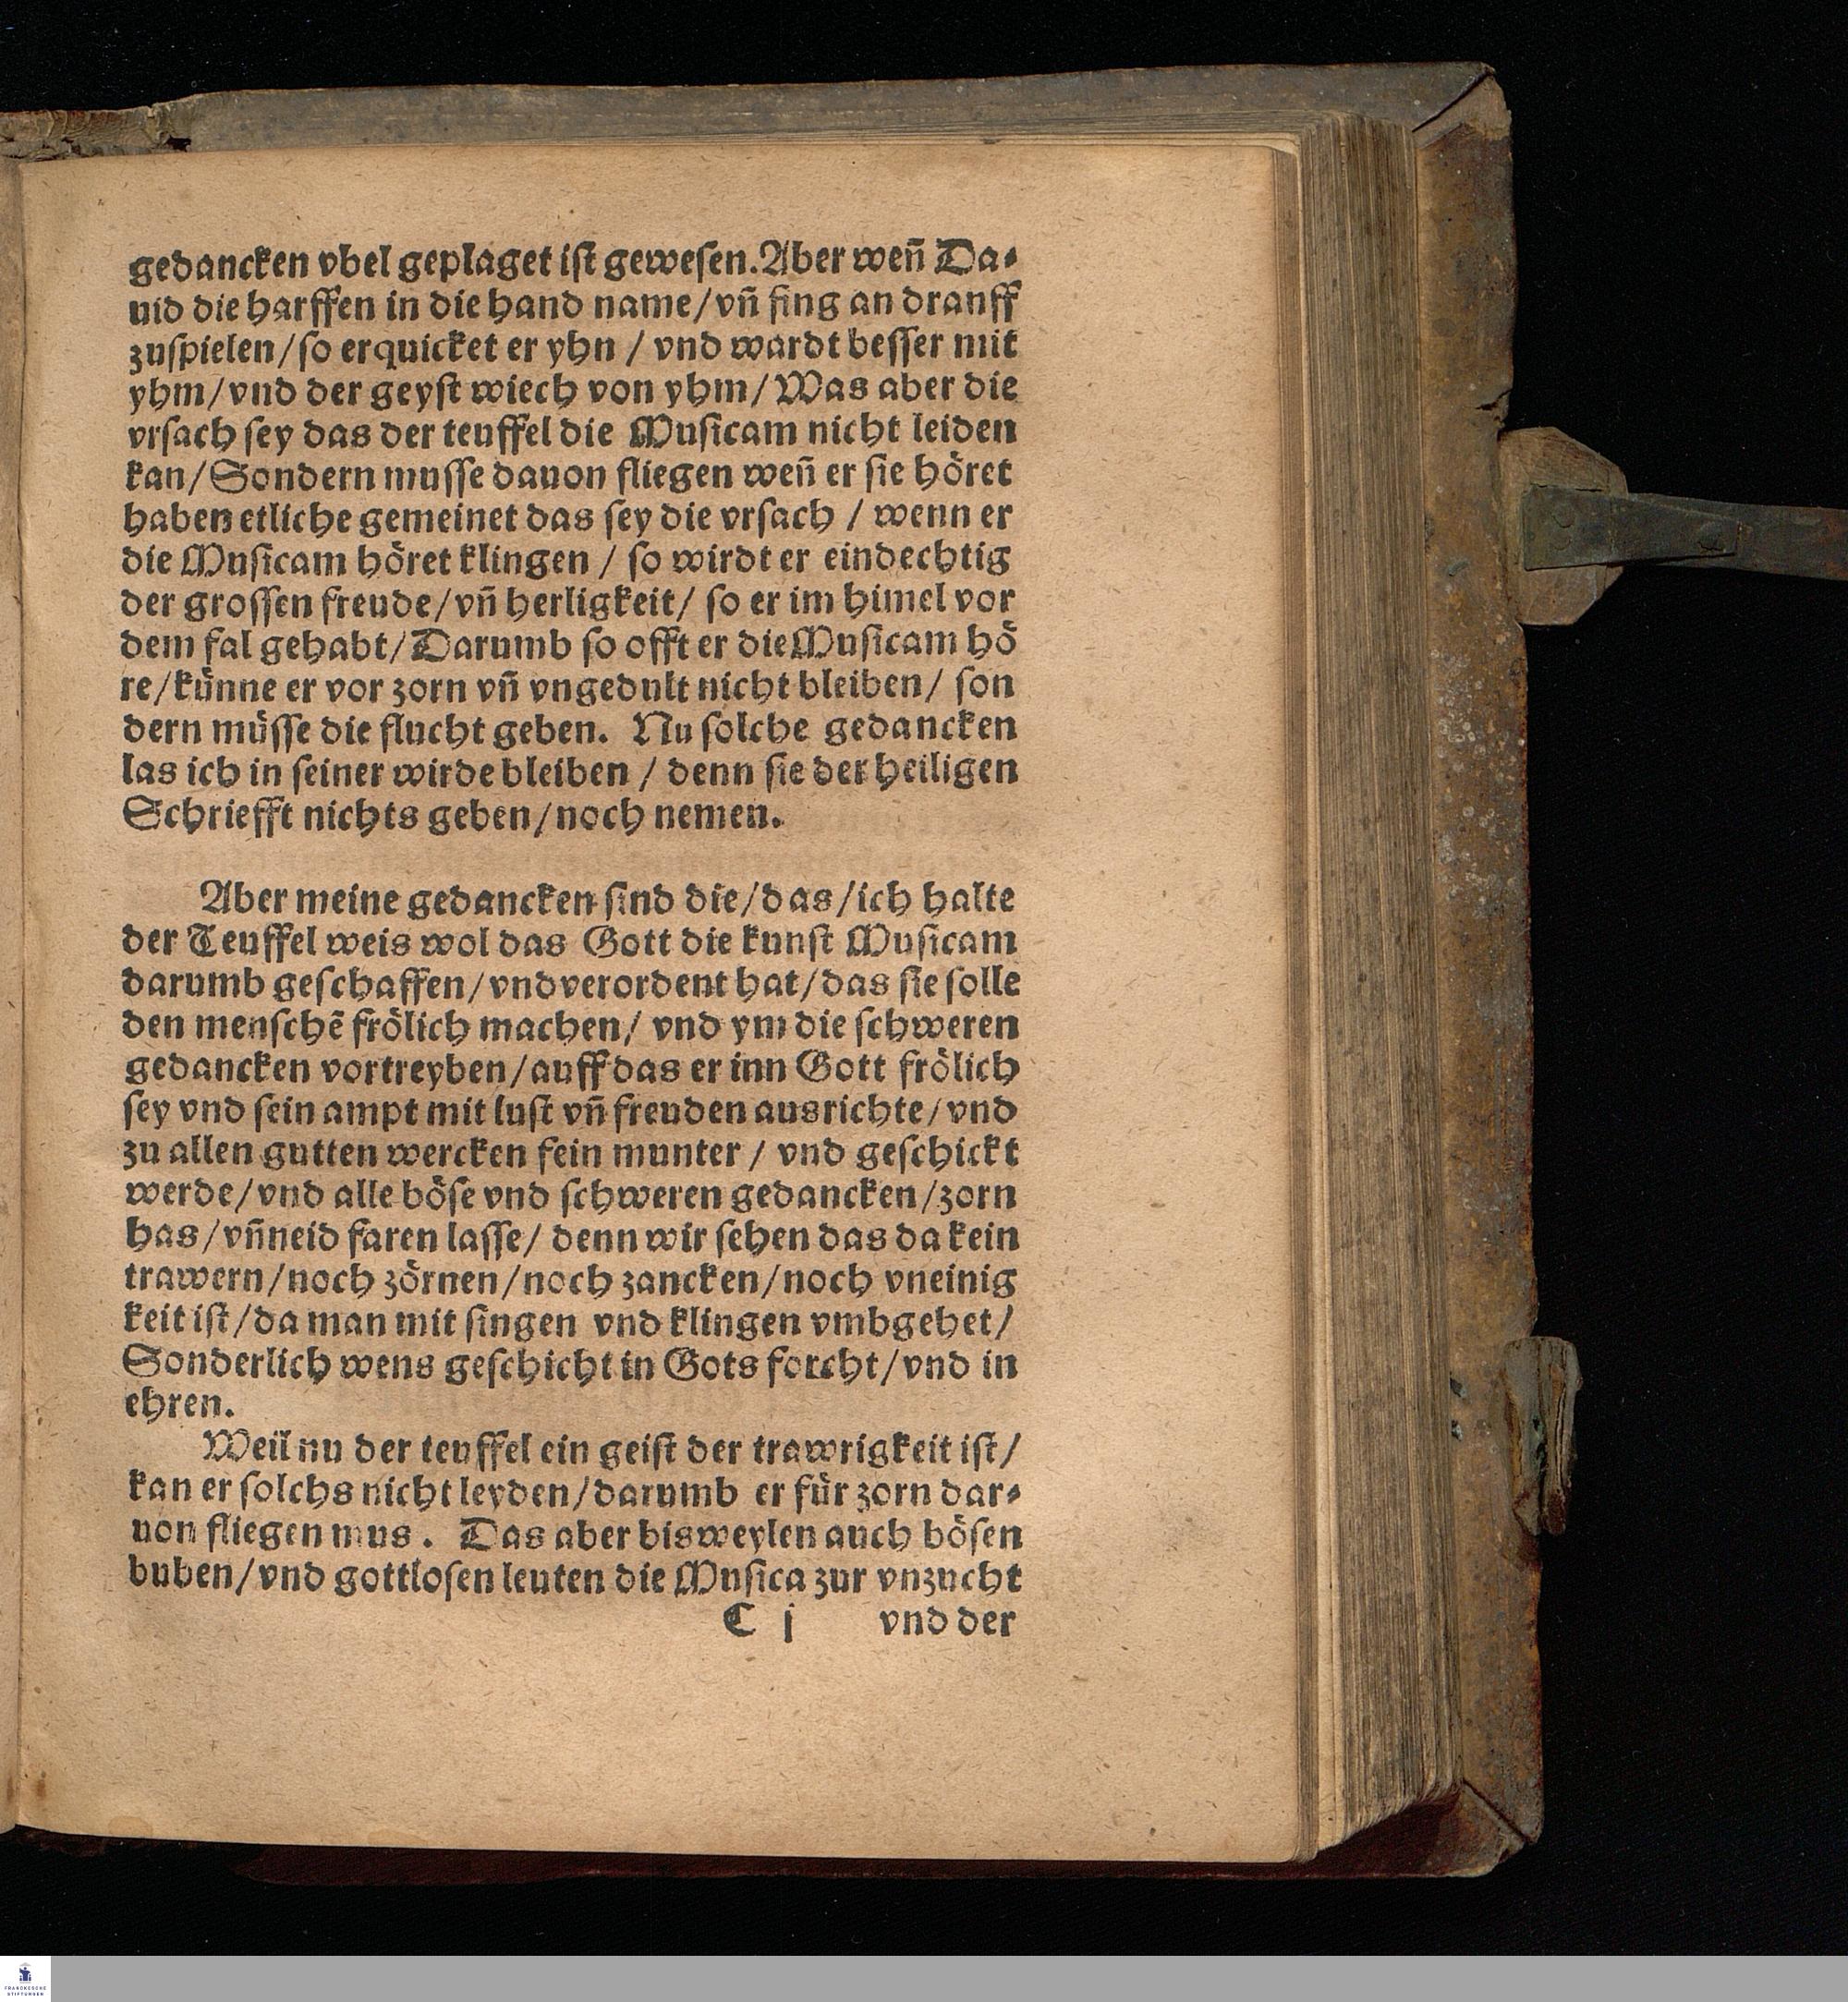 gedancken vbel geplaget ist gewesen. Aber weñ Da⸗
uid die harffen in die hand name/vñ fing an drauff
zuspielen/so erquicket er yhn / vnd wardt besser mit
yhm/vnd der geyst wiech von yhm/Was aber die
vrsach sey das der teuffel die Musicam nicht leiden
kan/Sondern musse dauon fliegen weñ er sie höret
haben etliche gemeinet das sey die vrsach / wenn er
die Musicam höret klingen / so wirdt er eindechtig
der grossen freude/vñ herligkeit/ so er im himel vor
dem fal gehabt/Darumb so offt er die Musicam hö
re/künne er vor zorn vñ vngedult nicht bleiben/ son
dern müsse die flucht geben. Nu solche gedancken
las ich in seiner wirde bleiben / denn sie der heiligen
Schriefft nichts geben/noch nemen.
Aber meine gedancken sind die/das/ich halte
der Teuffel weis wol das Gott die kunst Musicam
darumb geschaffen/vnd verordent hat/das sie solle
den menschẽ frölich machen/ vnd ym die schweren
gedancken vortreyben/auff das er inn Gott frölich
sey vnd sein ampt mit lust vñ freuden ausrichte/vnd
zu allen gutten wercken fein munter / vnd geschickt
werde/vnd alle böse vnd schweren gedancken/zorn
has/vñ neid faren lasse/ denn wir sehen das da kein
trawern/noch zörnen/noch zancken/noch vneinig
keit ist/da man mit singen vnd klingen vmbgehet/
Sonderlich wens geschicht in Gots forcht/vnd in
ehren.
Weil nu der teuffel ein geist der trawrigkeit ist/
kan er solchs nicht leyden/darumb er für zorn dar⸗
uon fliegen mus. Das aber bisweylen auch bösen
buben/vnd gottlosen leuten die Musica zur vnzucht
C j vnd der
FRANCKESCHE
STIFTUNGEN